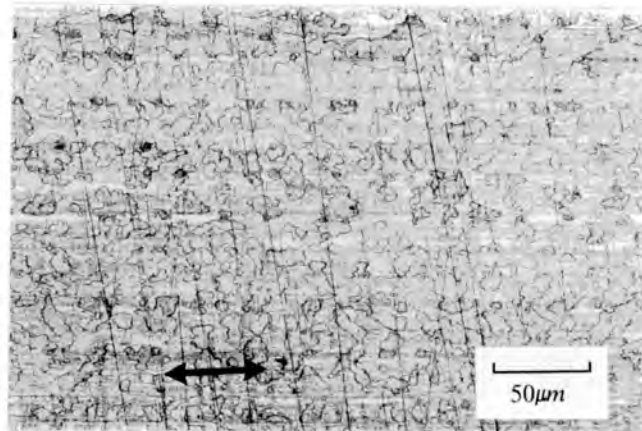 50μm